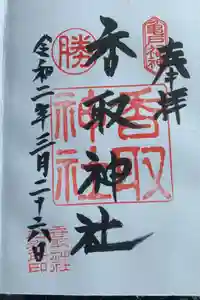 奉拝
香取神社
令和二年三月二十六日
勝
香取
神社